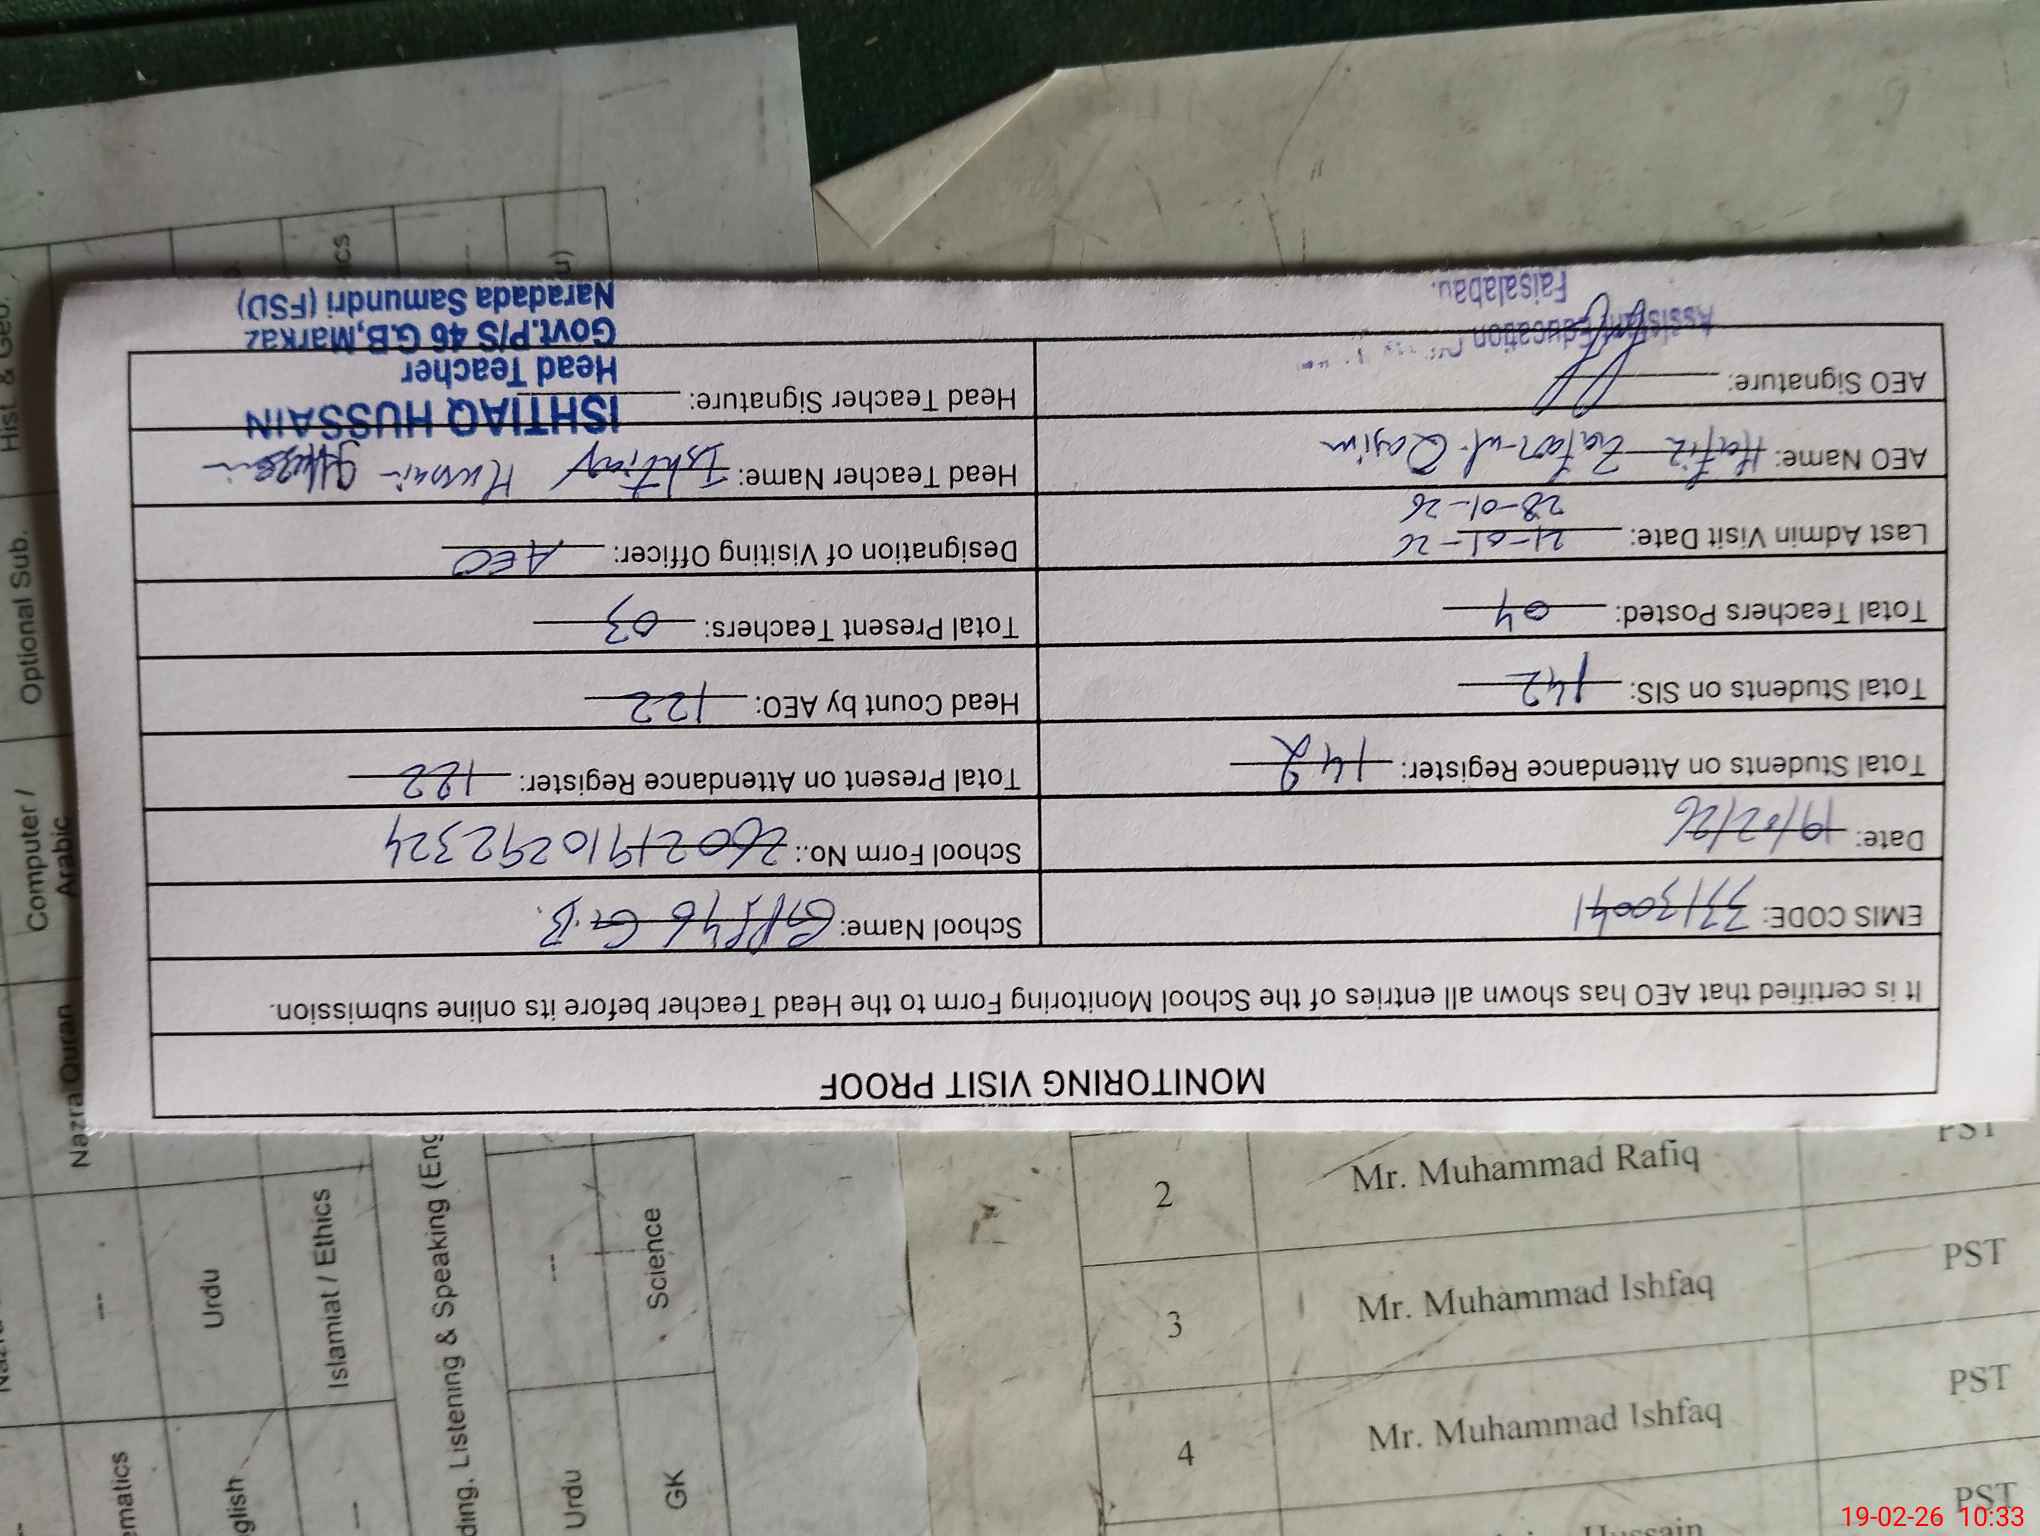 MONITORING VISIT PROOF
It is certified that AEO has shown all entries of the School Monitoring Form to the Head Teacher before its online submission.
EMIS CODE: 33130041
School Name: GPS 46 G.B.
Date: 19/02/26
School Form No.: 2602191029 2324
Total Students on Attendance Register: 142
Total Present on Attendance Register: 122
Total Students on SIS: 142
Head Count by AEO: 122
Total Teachers Posted: 04
Total Present Teachers: 03
Last Admin Visit Date: 21-01-26
28-01-26
Designation of Visiting Officer: AEO
AEO Name: Hafiz Zafar-ul-Qasim
Head Teacher Name: Ishtiaq Hussain
AEO Signature:
Head Teacher Signature:
Assistant Education
Faisalabad.
ISHTIAQ HUSSAIN
Head Teacher
Govt.P/S 46 G.B,Markaz
Naradada Samundri (FSD)
2 Mr. Muhammad Rafiq PST
3 Mr. Muhammad Ishfaq PST
4 Mr. Muhammad Ishfaq PST
Hussain PST
Hist. & Geo.
Optional Sub.
Computer /
Arabic
Nazra Quran
---
Urdu
Islamiat / Ethics
ding, Listening & Speaking (Eng
---
Science
ematics
glish
---
Urdu
GK
19-02-26 10:33